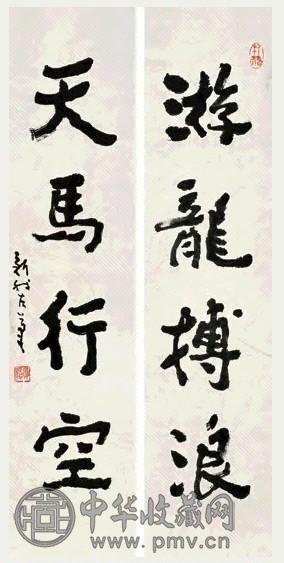 游龍搏浪
天馬行空
中华收藏网
www.pmv.cn